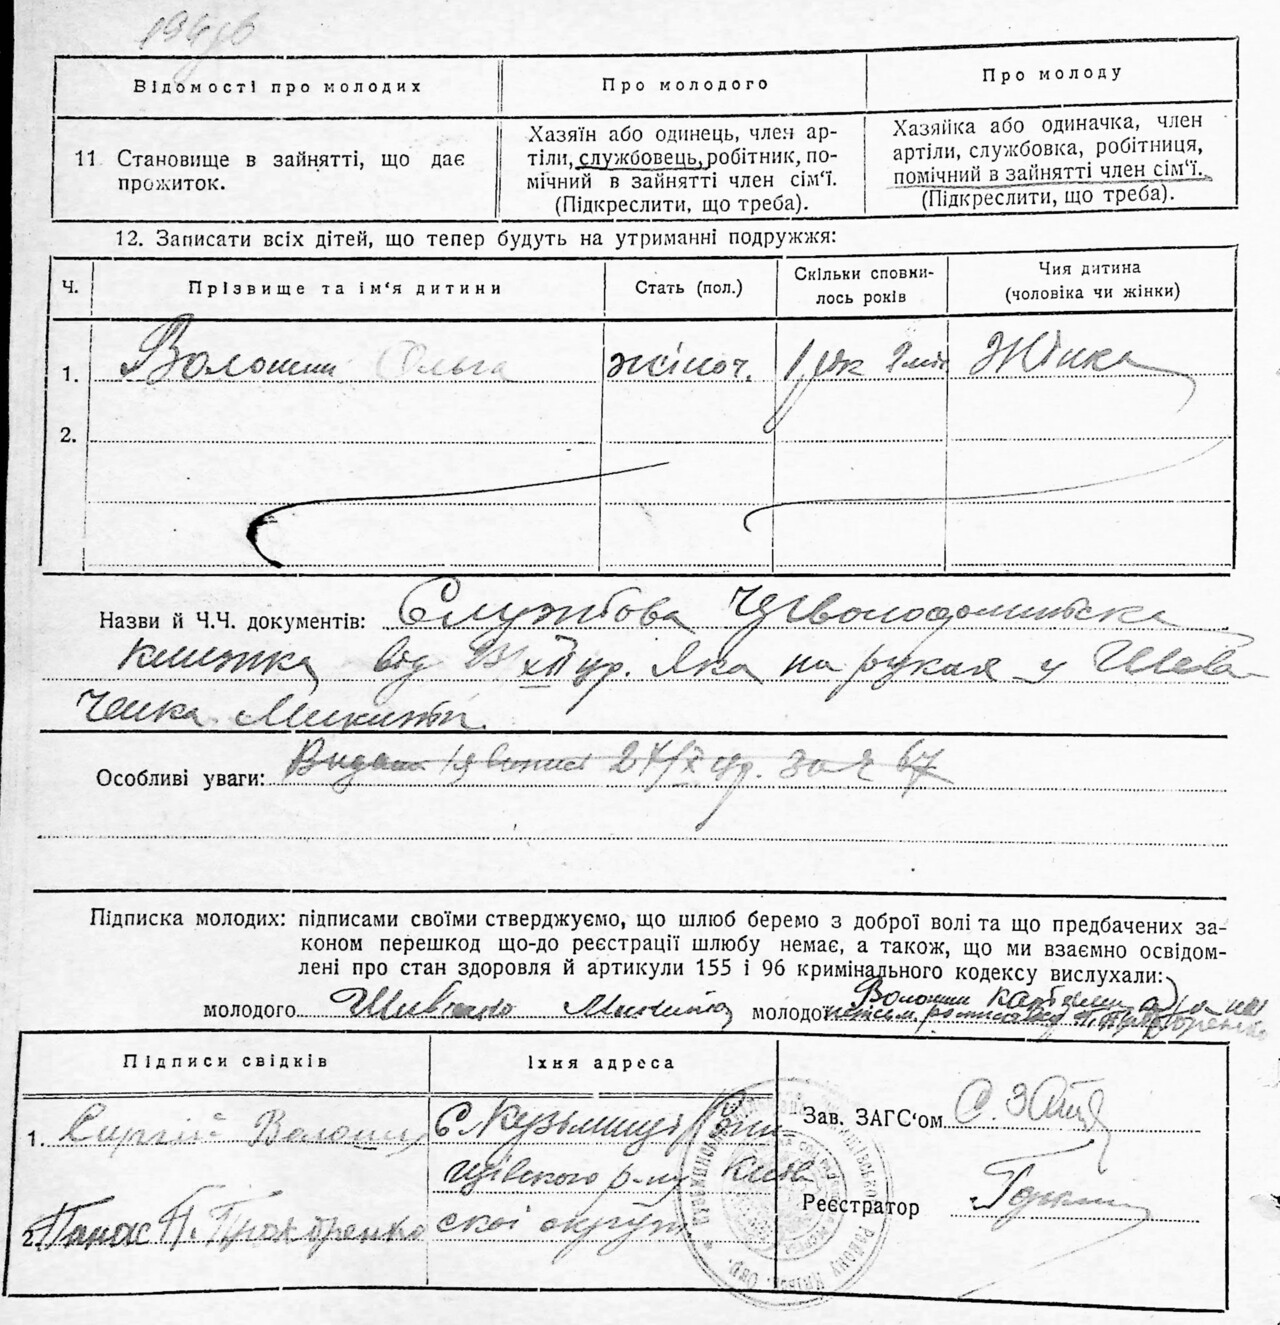 Відомості про молодих
Про молодого
Про молоду
11 Становище в зайнятті, що дає
прожиток.
Хазяїн або одинець, член ар-
тіли, службовець, робітник, по-
мічний в зайнятті член сім'ї.
(Підкреслити, що треба).
Хазяйка або одиначка, член
артіли, службовка, робітниця,
помічний в зайнятті член сім'ї.
(Підкреслити, що треба).
12. Записати всіх дітей, що тепер будуть на утриманні подружжя:
Ч.
Прізвище та ім'я дитини
Стать (пол.)
Скільки сповни-
лось років
Чия дитина
(чоловіка чи жінки)
1. Волошин Ольга жіноч. 1 рік 2 міс Жінка
2.
Назви й Ч.Ч. документів: Службова
книжка від XII ур. яка на руках у Шев
ченка Микити
Особливі уваги: Видан 24/X ур. за ч 67
Підписка молодих: підписами своїми стверджуємо, що шлюб беремо з доброї волі та що предбачених за-
коном перешкод що-до реєстрації шлюбу немає, а також, що ми взаємно освідом-
лені про стан здоровля й артикули 155 і 96 кримінального кодексу вислухали:
молодого Шивченко Микита молодої Волошин
Підписи свідків
Їхня адреса
1. Сиргій Волошин
2. Панас П. Прохоренко
С Кузьминці
р-ну Київ
ської округи
Зав. ЗАГС'ом
Реєстратор